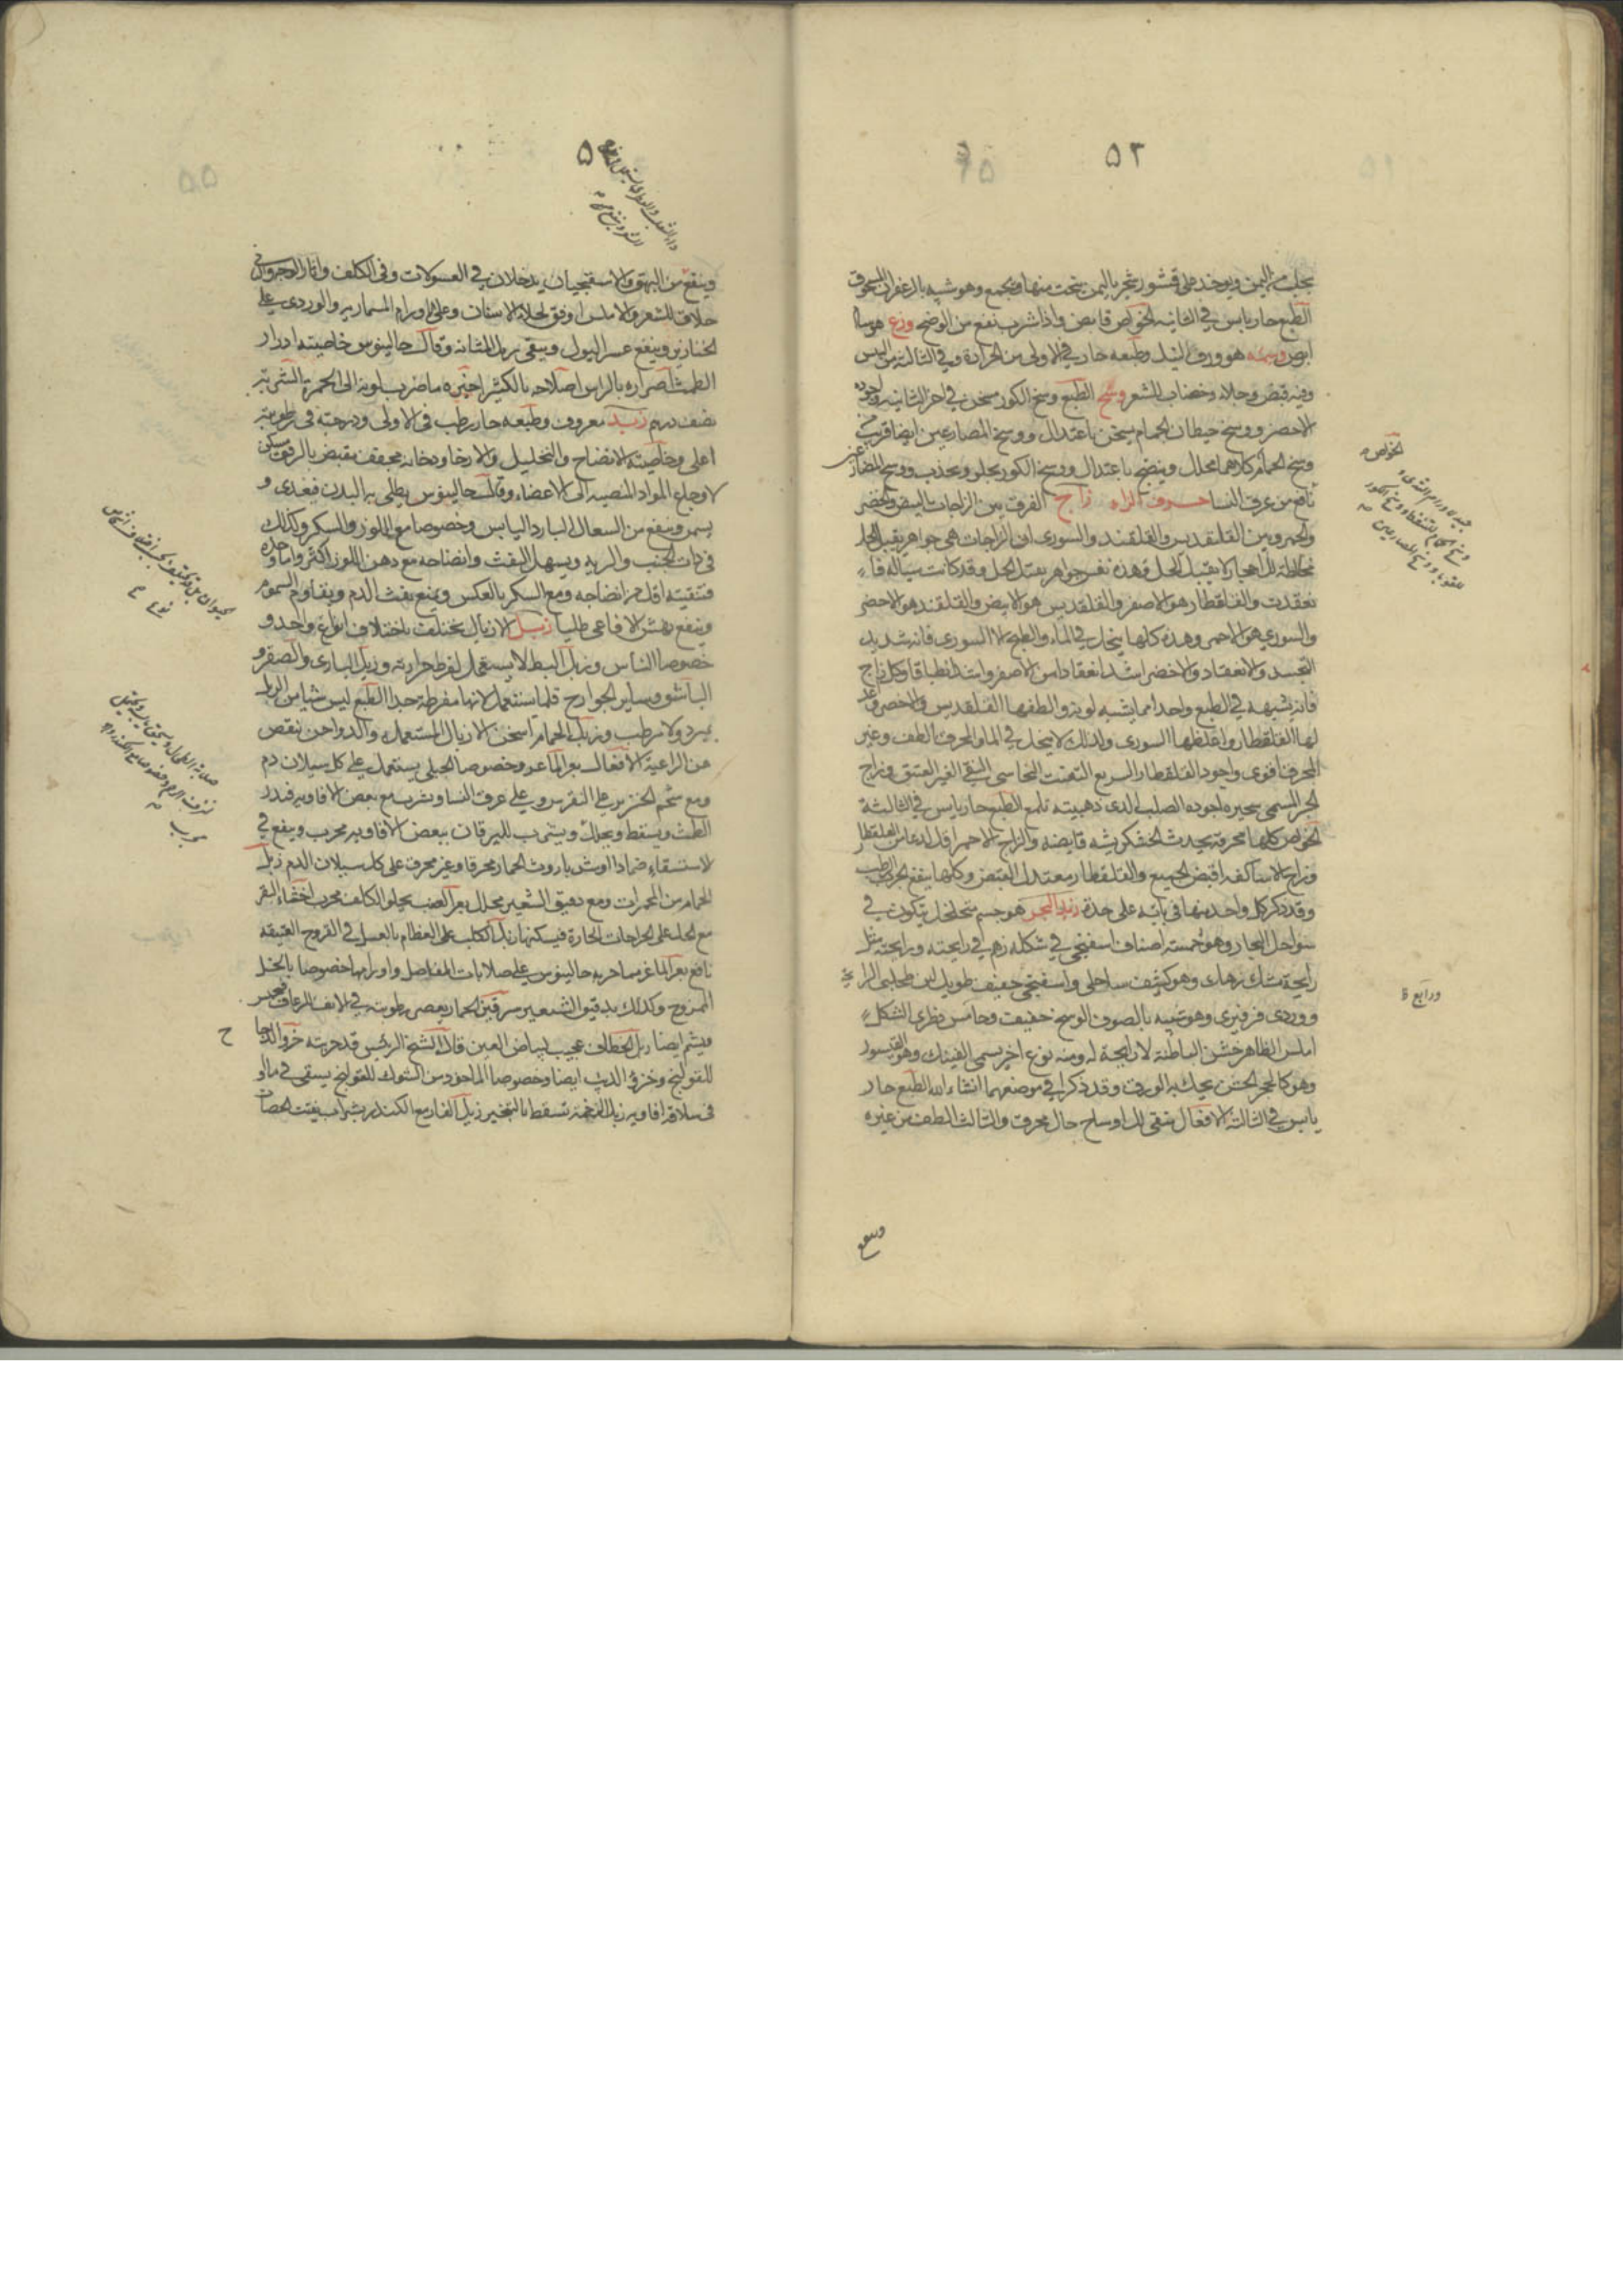 ٥٣
يجلب من اليمن ويوجد على قشور شجر باليمن ينحت منها ويجمع وهو شبيه بالزعفران المسحوق
الطبع حار يابس في الثانية الخواص قابض واذا شرب نفع من الوضح وزغ هو سام
ابرص وسمه هو ورق النيل وطبعه حار في الاولى من الحرارة وفي الثانية من اليبس
وفيه قبض وجلاء وخضاب للشعر وسخ الطبع وسخ الكور مسخن في اخر الثانية واجوده
الاخضر ووسخ حيطان الحمام يسخن باعتدال ووسخ المصارعين ايضا قريب من
وسخ الحمام كلاهما محلل وينضج باعتدال ووسخ الكور يجلو ويجذب ووسخ المصارعين
نافع من عرق النسا حرف الزاء زاج الفرق بين الزاجات البيض والخضر
والحمر وبين القلقديس والقلقند والسوري ان الزاجات هي جواهر يقبل الحل
مخالطة لاحجار لا يقبل الحل وهذه نفس جواهر يقبل الحل وقد كانت سيالة فا
نعقدت والقلقطار هو الاصفر والقلقديس هو الابيض والقلقند هو الاخضر
والسوري هو الاحمر وهذه كلها ينحل في الماء والطبخ الا السوري فانه شديد
التجسد والانعقاد والاخضر اشد انعقادا من الاصفر واشد انطباقا وكل زاج
فانه يشبهه في الطبع واحد مما يشبه لونه والطفها القلقديس والاخضر واعد
لها القلقطار واغلظها السوري ولذلك لا ينحل في الماء والمحرق الطف وغير
المحرق اقوى واجود القلقطار السريع التفتت النحاسي النقي الغير العتيق وزاج
الحبر المسمى سحيره اجوده الصلب الذي ذهبيته تلمع الطبع حار يابس في الثالثة
الخواص كلها محرقة يحدث الخشكريشه قابضه والزاج الاحمر اقل لذعا من القلقطار
وزاج الاساكفه اقبض الجميع والقلقطار معتدل القبض وكلها ينفع الجرب الرطب
وقد ذكر كل واحد منها في بابه على حدة زبد البحر هو جسم متخلخل يتكون في
سواحل البحار وهو خمسة اصناف اسفنجي في شكله زهم في رايحته ورايحته مثل
رايحة سمك زهك وهو كثيف ساحلي واسفنجي خفيف طويل لين طحلبي الرائحة
ووردي فرفيري وهو شبيه بالصوف الوسخ خفيف وخامس فطري الشكل
املس الظاهر خشن الباطن لا رايحة له ومنه نوع اخر يسمى الفينك وهو القيسور
وهو كالحجر الخشن يحك به الورق وقد ذكرا في موضعهما انشاء الله الطبع حار
يابس في الثالثة الافعال منقي لاوساخ جال محرق والثالث الطف من غيره
الخواص
ورابع
وينفع
٥٤
وينفع من البهق والاسفنجيان يدخلان في الغسولات وفي الكلف واثار الوجه
حلاق للشعر والاملس اوفق لجلاء الاسنان وعلى اورام المساريه والوردي على
الخنازير وينفع عسر البول وينقي رمل المثانه وقال جالينوس خاصيته ادرار
الطمث اضراره بالراس اصلاحه بالكثيرا خيره ما ضرب لونه الى الحمرة الشربة
نصف درهم زبد معروف وطبعه حار رطب في الاولى ودرجته في رطوبته
اعلى وخاصيته الانضاج والتحليل والارخاء ودخانه مجفف يقبض بالرفق مسكن
لاوجاع المواد المنصبه الى الاعضاء وقال جالينوس يطلى به البدن فيغذي و
يسمن وينفع من السعال البارد اليابس وخصوصا مع اللوز والسكر وكذلك
في ذات الجنب والرية ويسهل النفث وانضاجه مع دهن اللوز اكثر واما وحده
فتنقيته اقل من انضاجه ومع السكر بالعكس ويمنع نفث الدم ويقاوم السموم
وينفع نهش الافاعي طليا زبل الازبال يختلف باختلاف انواع واحد و
خصوصا الناس وزبل البط لا يستعمل لفرط حرارته وزبل البازي والصقر و
الباشق وساير الجوارح قلما يستعمل لانها مفرطة جدا الطبع ليس شيا من الزبل
يبرد ولا يرطب وزبل الحمام اسخن الازبال المستعملة والدواجن نقص
من الراعية الافعال بعر الماعز وخصوصا الجبلي يستعمل على كل سيلان دم
ومع شحم الخنزير على النقرس وعلى عرق النسا ويشرب مع بعض الافاويه فيدر
الطمث ويسقط ويحلل ويشرب لليرقان ببعض الافاويه مجرب وينفع في
الاستسقاء ضمادا وشربا روث الحمار محرقا وغير محرق على كل سيلان الدم زبل
الحمام من المحمرات ومع دقيق الشعير محلل بعر الضب يجلو الكلف مجرب اخثاء البقر
مع الخل على الخراجات الحارة فيسكنها زبل الكلب على العظام بالعسل في القروح العتيقه
نافع بعر الماعز مما جربه جالينوس على صلابات المفاصل واورامها خصوصا بالخل
الممزوج وكذلك بدقيق الشعير سرقين الحمار يعصر رطوبته في الانف للرعاف فيحبس
ويشم ايضا زبل الخطاف عجيب لبياض العين قال الشيخ الرئيس قد جربته خرؤ الدجاج
للقولنج وخرؤ الذيب ايضا وخصوصا الماخوذ من الشوك للقولنج يسقى في ماء او
في سلاقة افاويه زبل الرخمة تسقط بالتبخير زبل الفار مع الكندر بشراب يفتت الحصاة